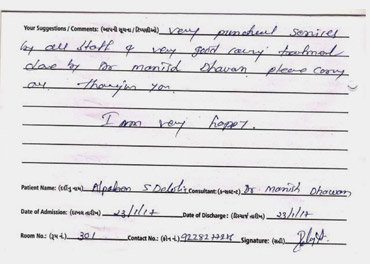 Your Suggestions / Comments: (આપની સૂચના / ટિપ્પણીઓ) very punchual services
by all staff & very good caury treatment
done by Dr manish Dhavan. please carry
on. Thankyou you.
I am very happy.
Patient Name: (દર્દીનું નામ) Alpaben S Consultant: (ડૉક્ટર) Dr. Manish Dhawan
Date of Admission: (દાખલ તારીખ) 23/1/17 Date of Discharge: (ડિસ્ચાર્જ તારીખ) 23/1/17
Room No.: (રૂમ નં.) 301 Contact No.: (ફોન નં.) Signature: (સહી)